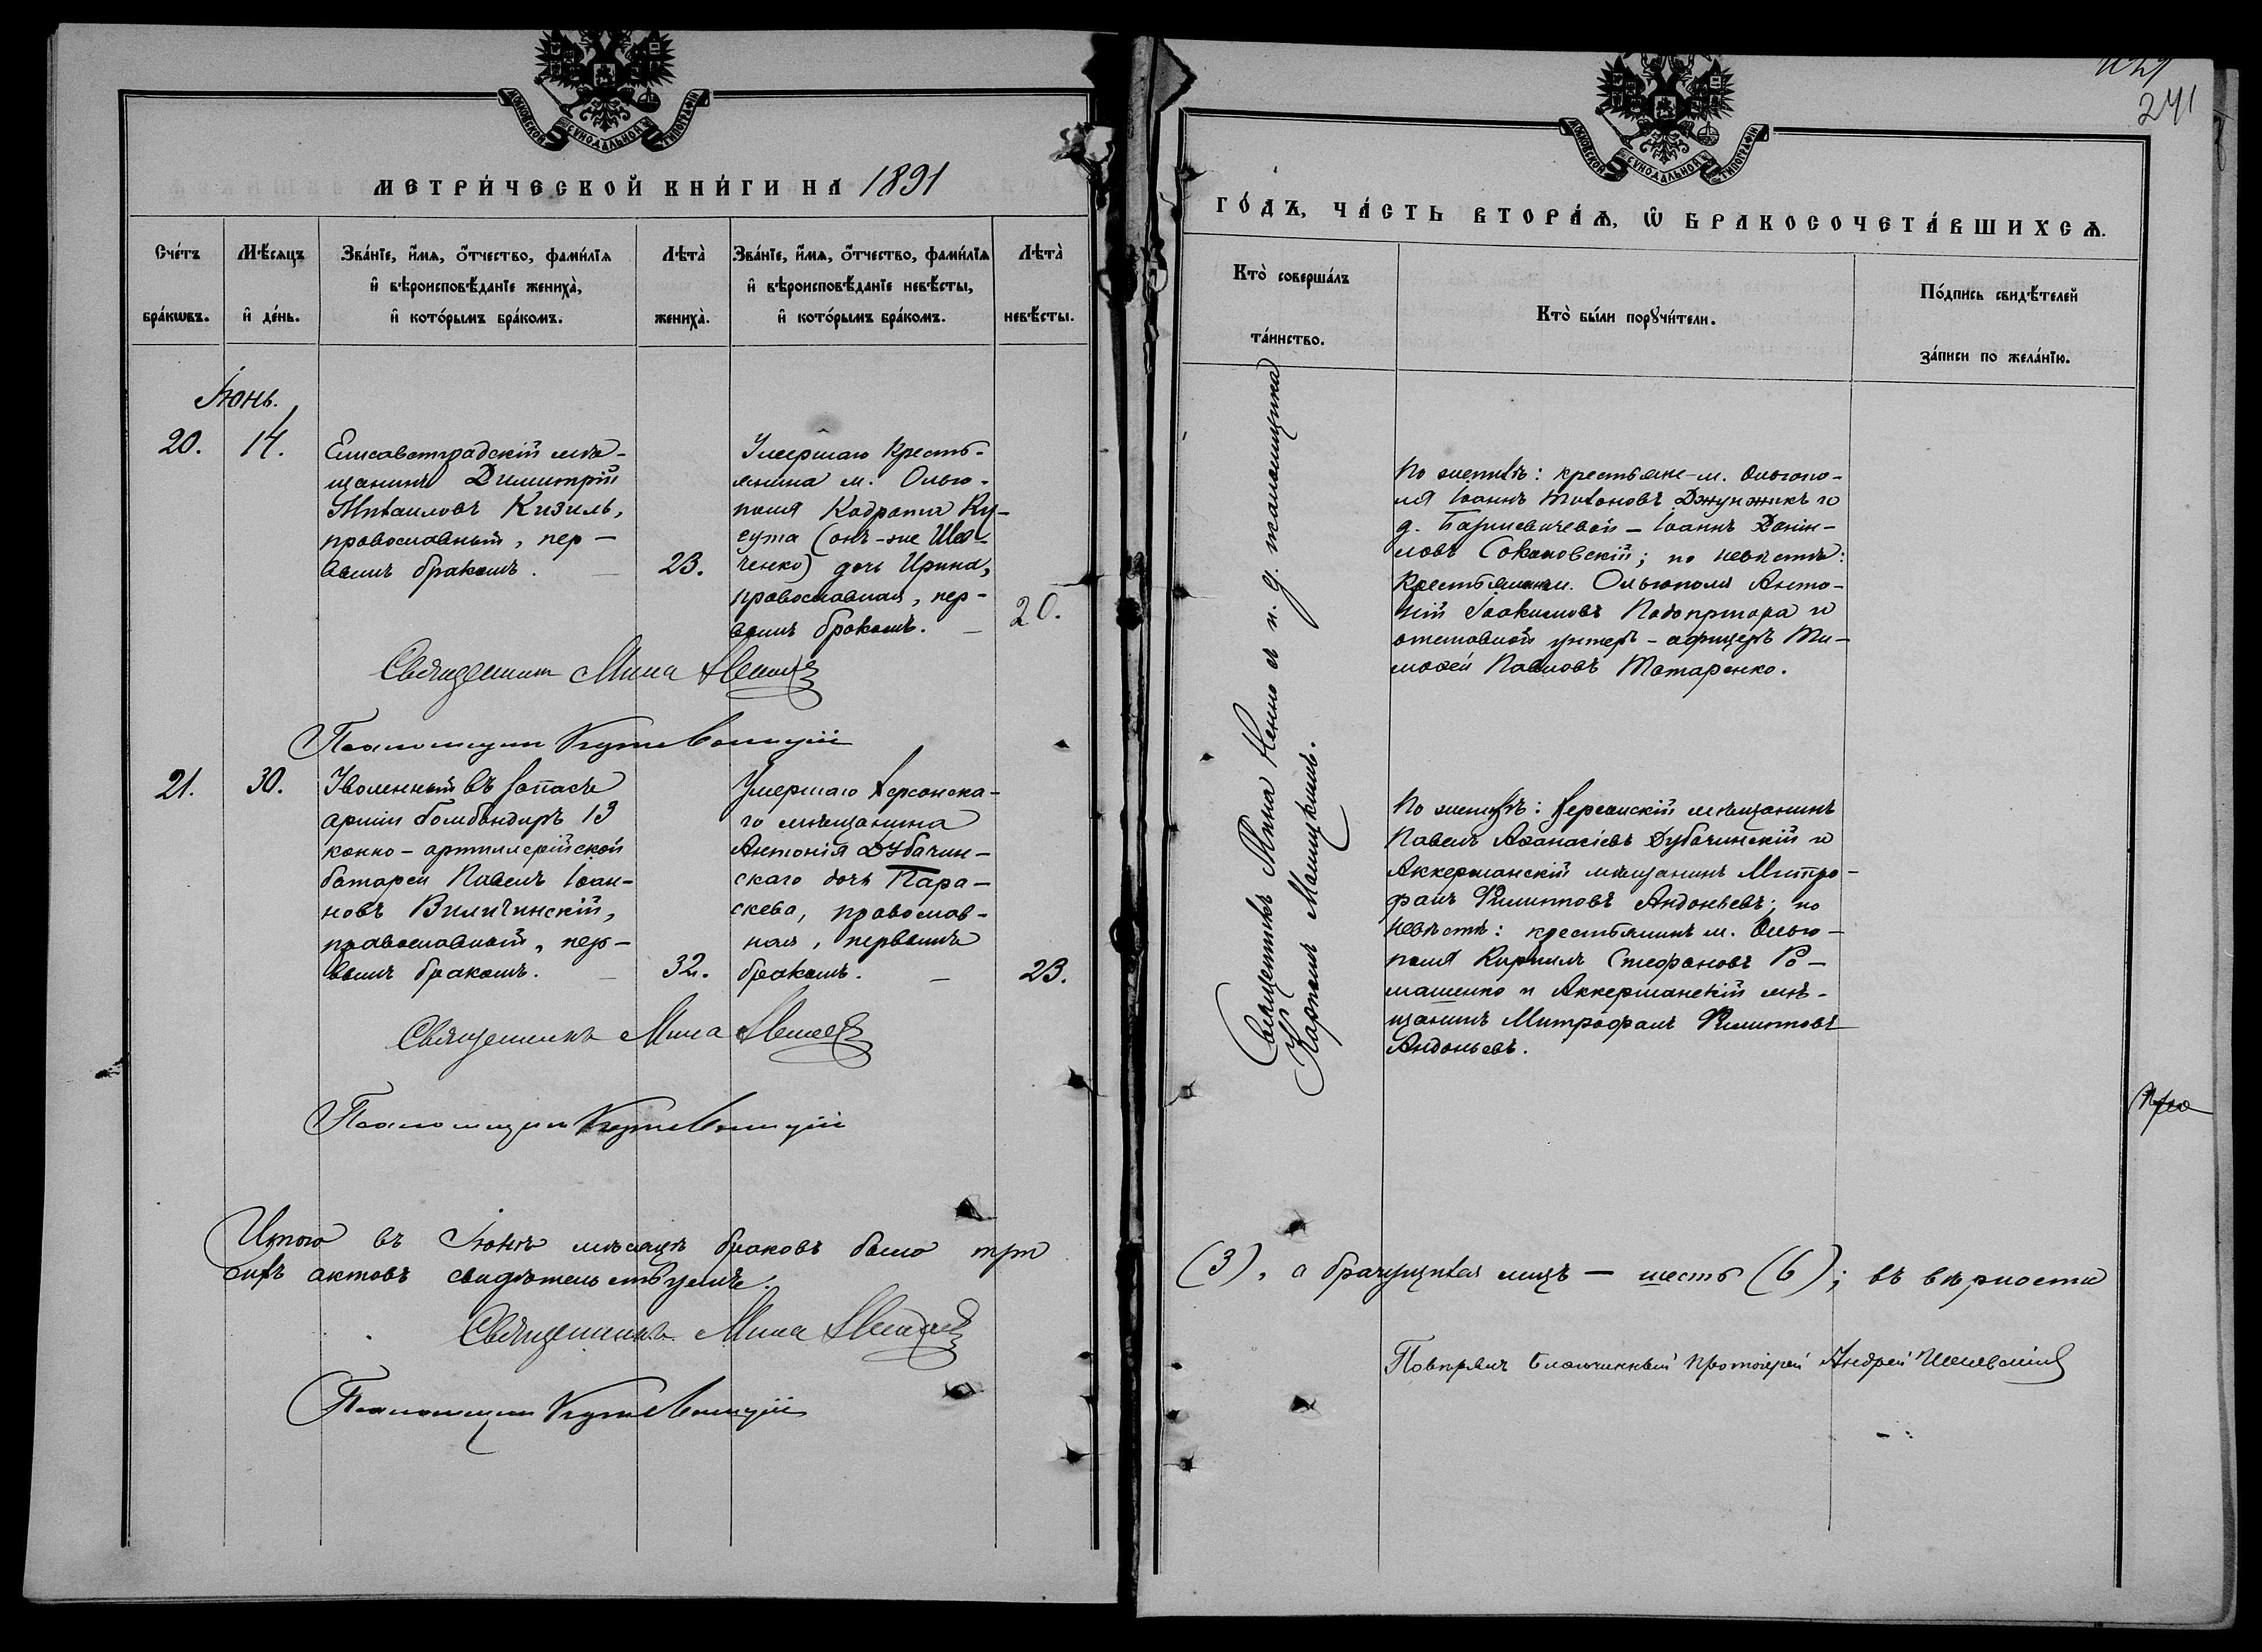 МОСКОВСКОЙ СѴНОДАЛЬНОЙ ТИПОГРАФІИ
МЕТРИ́ЧЕСКОЙ КНИ́ГИ НА 1891
Сче́тъ бра́кѡвъ.
Мѣ́сяцъ и҆ де́нь.
Зва́нїе, и҆́мѧ, ѻ҆́тчество, фами́лїѧ
и҆ вѣроисповѣ́данїе жениха̀,
и҆ кото́рымъ бра́комъ.
Лѣта̀ жениха̀.
Зва́нїе, и҆́мѧ, ѻ҆́тчество, фами́лїѧ
и҆ вѣроисповѣ́данїе невѣ́сты,
и҆ кото́рымъ бра́комъ.
Лѣта̀ невѣ́сты.
Іюнь.
20. 14.
Елисаветградскій мѣ-
щанинъ Димитрій
Михаиловъ Кизиль,
православный, пер-
вымъ бракомъ.
23.
Умершаго Кресть-
янина м. Ольго-
поля Кодрата Ку-
сута (онъ-же Шев-
ченко) дочь Ирина,
православная, пер-
вымъ бракомъ.
20.
Священникъ Мина
Псаломщикъ
21. 30.
Уволенный въ запасъ
арміи бомбандиръ 13
конно-артиллерійской
батареи Павелъ Іоан-
новъ Виличинскій,
православный, пер-
вымъ бракомъ.
32.
Умершаго Херсонска-
го мѣщанина
Антонія Дубачин-
скаго дочь Пара-
скева, православ-
ная, первымъ
бракомъ.
23.
Священникъ Мина
Псаломщикъ
Итого въ Іюнѣ мѣсяцѣ браковъ было три
сихъ актовъ свидѣтельствуемъ.
Священникъ Мина
Псаломщикъ
241
МОСКОВСКОЙ СѴНОДАЛЬНОЙ ТИПОГРАФІИ
ГО́ДЪ, ЧА́СТЬ ВТОРА́Ѧ, Ѡ҆ БРАКОСОЧЕТА́ВШИХСѦ.
Кто̀ соверша́лъ
та́инство.
Кто̀ бы́ли порꙋчи́тели.
По́дпись свидѣ́телей
за́писи по жела́нїю.
Священникъ Мина Ненно съ и. д. псаломщика
Карпомъ
По женихѣ: крестьяне-м. Ольгопо-
ля Іоаннъ Тихоновъ Джунжикъ и
д. Бармсвичевой - Іоаннъ Даніи-
ловъ Соколовскій; по невѣстѣ:
Крестьянинъ м. Ольгополя Анто-
ній Іоакимовъ Подопригора и
отставной унтеръ-офицеръ Ти-
моѳей Павловъ Татаренко.
По женихѣ: Херсонскій мѣщанинъ
Павелъ Аѳанасіевъ Дубачинскій и
Аккерманскій мѣщанинъ Митро-
фанъ Филиповъ Андоньевъ; по
невѣстѣ: крестьянинъ м. Ольго-
поля Кириллъ Стефановъ Ро-
машенко и Аккерманскій мѣ-
щанинъ Митрофанъ Филиповъ
Андоньевъ.
(3), а брачущихся лицъ - шесть (6); въ вѣрности
Повѣрялъ Благочинный Протоіерей Андрей